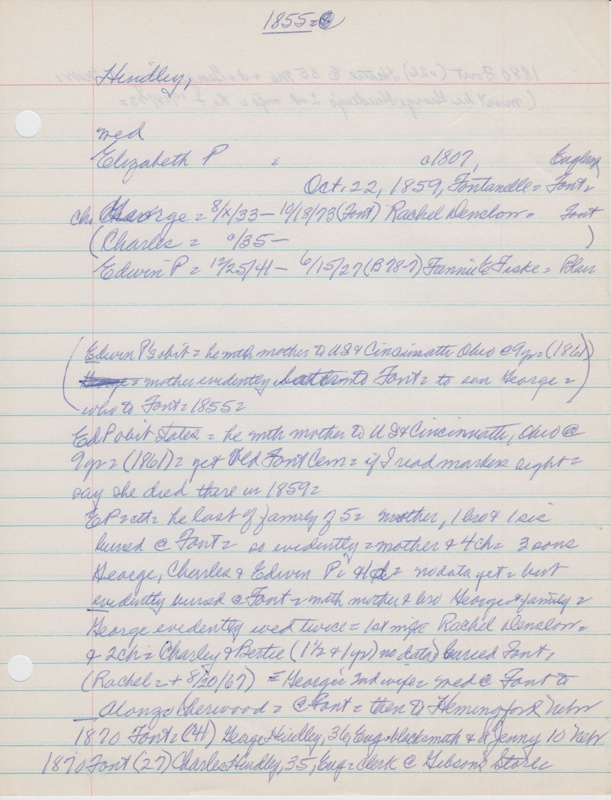 1855=
Hindley,
wed
Elizabeth P = c1807, England
Oct. 22, 1859, Fontanelle = Font.
ch. George = 8/x/33 - 10/18/73 (Font) Rachel Denslow = Font
(Charles = °/35 - )
Edwin P = 12/25/41 - 6/15/27 (B 78-7) Fannie E Fiske = Blair
(Edwin P's obit = he with mother to US & Cincinnatti Ohio @ 9 yr = (1861)
= mother evidently to Font = to son George =)
who to Font = 1855 =
Ed P obit states = he with mother to US & Cincinnatti, Ohio @
9 yr = (1861) = yet Old Font Cem = if I read markers right =
say she died there in 1859 =
EP = cth = he last of family of 5 = mother, 1 bro & 1 sis
buried @ Font = so evidently = mother & 4 ch = 3 sons
George, Charles & Edwin P = & = no data yet = but
evidently buried @ Font = with mother & bro George & family =
George evidently wed twice = 1st wife Rachel Denslow =
& 2 ch = Charley & Bertie (1½ & 1 yr) no data) buried Font.
(Rachel = + 8/20/67) = George's 2nd wife = wed @ Font to
Alonzo Sherwood = @ Font = then to Hemingford Nebr
1870 Font = (41) George Hindley, 36, Eng = blacksmith & Jenny 10 Nebr
1870 Font (27) Charles Hindley, 35, Eng = clerk @ Gibson's Store